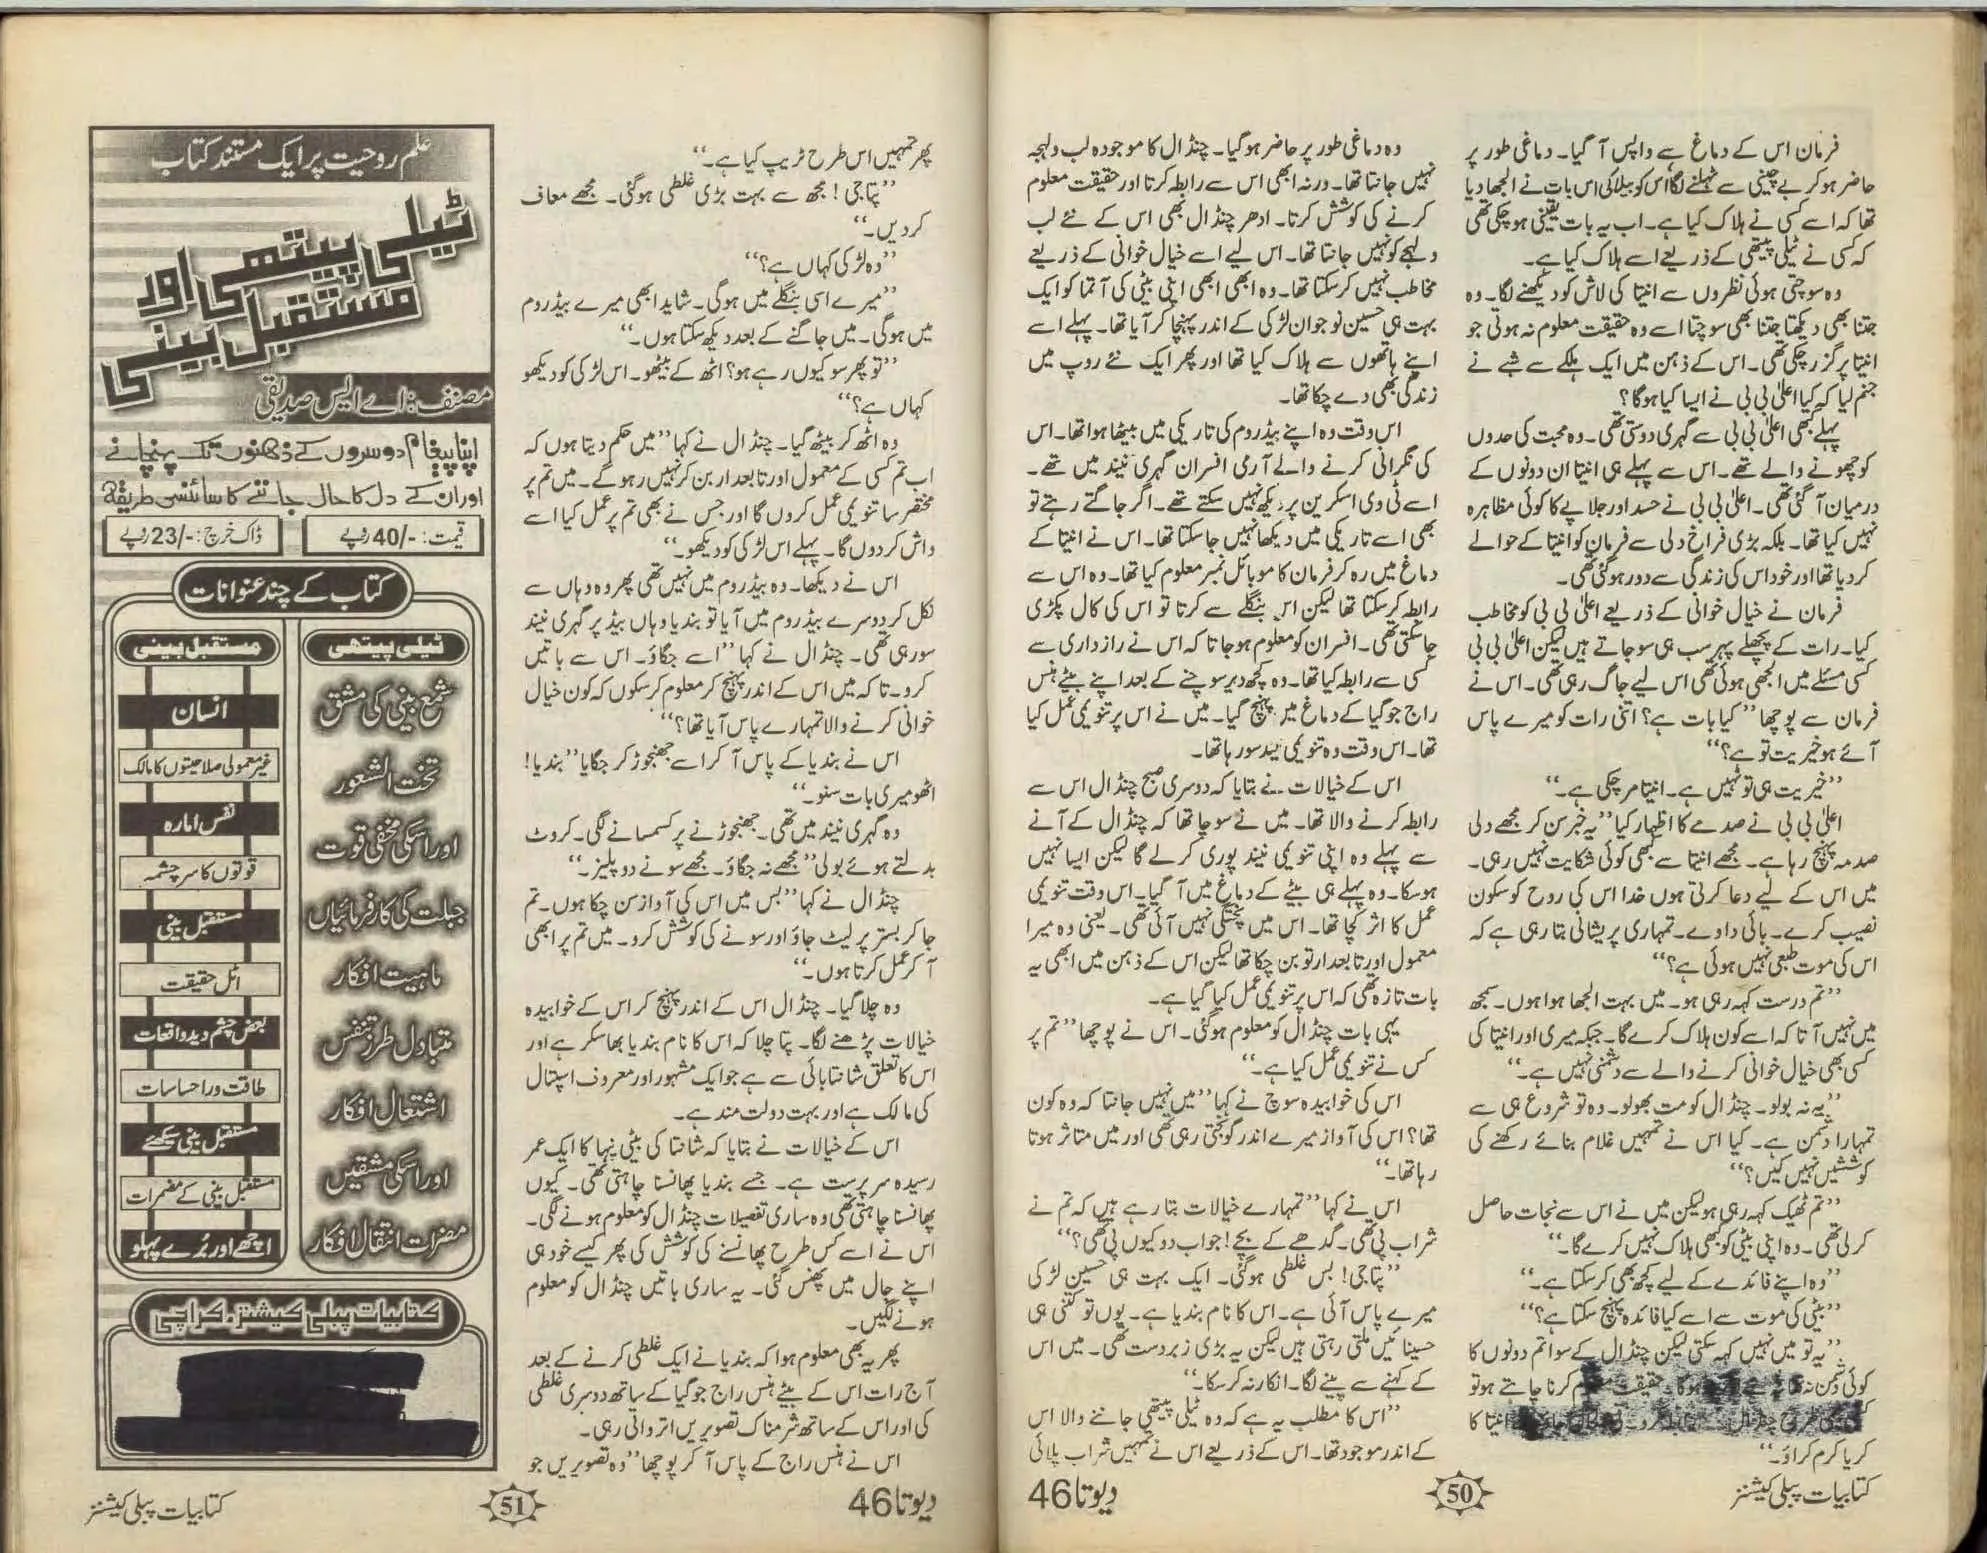 فرمان اس کے دماغ سے واپس آ گیا۔ دماغی طور پر
حاضر ہو کر بے چینی سے ٹہلنے لگا اس کو بیلا کی اس بات نے الجھا دیا
تھا کہ اسے کسی نے ہلاک کیا ہے۔ اب یہ بات یقینی ہو چکی تھی
کہ کسی نے ٹیلی پیتھی کے ذریعے اسے ہلاک کیا ہے۔
وہ سوچتی ہوئی نظروں سے انیتا کی لاش کو دیکھنے لگا۔ وہ
جتنا بھی دیکھتا جتنا بھی سوچتا اسے وہ حقیقت معلوم نہ ہوتی جو
انیتا پر گزر چکی تھی۔ اس کے ذہن میں ایک ہلکے سے شبے نے
جنم لیا کہ کیا اعلیٰ بی بی نے ایسا کیا ہوگا؟
پہلے بھی اعلیٰ بی بی سے گہری دوستی تھی۔ وہ محبت کی حدوں
کو چھونے والے تھے۔ اس سے پہلے ہی انیتا ان دونوں کے
درمیان آ گئی تھی۔ اعلیٰ بی بی نے حسد اور جلاپے کا کوئی مظاہرہ
نہیں کیا تھا۔ بلکہ بڑی فراخ دلی سے فرمان کو انیتا کے حوالے
کر دیا تھا اور خود اس کی زندگی سے دور ہو گئی تھی۔
فرمان نے خیال خوانی کے ذریعے اعلیٰ بی بی کو مخاطب
کیا۔ رات کے پچھلے پہر سب ہی سو جاتے ہیں لیکن اعلیٰ بی بی
کسی مسئلے میں الجھی ہوئی تھی اس لیے جاگ رہی تھی۔ اس نے
فرمان سے پوچھا ”کیا بات ہے؟ اتنی رات کو میرے پاس
آئے ہو خیریت تو ہے؟“
”خیریت ہی تو نہیں ہے۔ انیتا مر چکی ہے۔“
اعلیٰ بی بی نے صدمے کا اظہار کیا ”یہ خبر سن کر مجھے دلی
صدمہ پہنچ رہا ہے۔ مجھے انیتا سے کبھی کوئی شکایت نہیں رہی۔
میں اس کے لیے دعا کرتی ہوں خدا اس کی روح کو سکون
نصیب کرے۔ بائی داوے۔ تمہاری پریشانی بتا رہی ہے کہ
اس کی موت طبعی نہیں ہوئی ہے؟“
”تم درست کہہ رہی ہو۔ میں بہت الجھا ہوا ہوں۔ سمجھ
میں نہیں آتا کہ اسے کون ہلاک کرے گا۔ جبکہ میری اور انیتا کی
کسی بھی خیال خوانی کرنے والے سے دشمنی نہیں ہے۔“
”یہ نہ بولو۔ چنڈال کو مت بھولو۔ وہ تو شروع ہی سے
تمہارا دشمن ہے۔ کیا اس نے تمہیں غلام بنائے رکھنے کی
کوششیں نہیں کیں؟“
”تم ٹھیک کہہ رہی ہو لیکن میں نے اس سے نجات حاصل
کر لی تھی۔ وہ اپنی بیٹی کو کبھی ہلاک نہیں کرے گا۔“
”وہ اپنے فائدے کے لیے کچھ بھی کر سکتا ہے۔“
”بیٹی کی موت سے اسے کیا فائدہ پہنچ سکتا ہے؟“
”یہ تو میں نہیں کہہ سکتی لیکن چنڈال کے سوا تم دونوں کا
کوئی دشمن نہ ہوگا۔ حقیقت کرنا چاہتے ہو تو
انیتا کا
کریا کرم کراؤ۔“
کتابیات پبلی کیشنز
50
وہ دماغی طور پر حاضر ہو گیا۔ چنڈال کا موجودہ لب و لہجہ
نہیں جانتا تھا۔ ورنہ ابھی اس سے رابطہ کرتا اور حقیقت معلوم
کرنے کی کوشش کرتا۔ ادھر چنڈال بھی اس کے نئے لب
و لہجے کو نہیں جانتا تھا۔ اس لیے اسے خیال خوانی کے ذریعے
مخاطب نہیں کر سکتا تھا۔ وہ ابھی ابھی اپنی بیٹی کی آتما کو ایک
بہت ہی حسین نوجوان لڑکی کے اندر پہنچا کر آیا تھا۔ پہلے اسے
اپنے ہاتھوں سے ہلاک کیا تھا اور پھر ایک نئے روپ میں
زندگی بھی دے چکا تھا۔
اس وقت وہ اپنے بیڈروم کی تاریکی میں بیٹھا ہوا تھا۔ اس
کی نگرانی کرنے والے آرمی افسران گہری نیند میں تھے۔
اسے ٹی وی اسکرین پر دیکھ نہیں سکتے تھے۔ اگر جاگتے رہتے تو
بھی اسے تاریکی میں دیکھا نہیں جا سکتا تھا۔ اس نے انیتا کے
دماغ میں رہ کر فرمان کا موبائل نمبر معلوم کیا تھا۔ وہ اس سے
رابطہ کر سکتا تھا لیکن اس بنگلے سے کرتا تو اس کی کال پکڑی
جا سکتی تھی۔ افسران کو معلوم ہو جاتا کہ اس نے رازداری سے
کسی سے رابطہ کیا تھا۔ وہ کچھ دیر سوچنے کے بعد اپنے بیٹے ہنس
راج جوگیا کے دماغ میں پہنچ گیا۔ میں نے اس پر تنویمی عمل کیا
تھا۔ اس وقت وہ تنویمی نیند سو رہا تھا۔
اس کے خیالات نے بتایا کہ دوسری صبح چنڈال اس سے
رابطہ کرنے والا تھا۔ میں نے سوچا تھا کہ چنڈال کے آنے
سے پہلے وہ اپنی تنویمی نیند پوری کر لے گا لیکن ایسا نہیں
ہو سکا۔ وہ پہلے ہی بیٹے کے دماغ میں آ گیا۔ اس وقت تنویمی
عمل کا اثر کچا تھا۔ اس میں پختگی نہیں آئی تھی۔ یعنی وہ میرا
معمول اور تابعدار تو بن چکا تھا لیکن اس کے ذہن میں ابھی یہ
بات تازہ تھی کہ اس پر تنویمی عمل کیا گیا ہے۔
یہی بات چنڈال کو معلوم ہو گئی۔ اس نے پوچھا ”تم پر
کس نے تنویمی عمل کیا ہے۔“
اس کی خوابیدہ سوچ نے کہا ”میں نہیں جانتا کہ وہ کون
تھا؟ اس کی آواز میرے اندر گونجتی رہی تھی اور میں متاثر ہوتا
رہا تھا۔“
اس نے کہا ”تمہارے خیالات بتا رہے ہیں کہ تم نے
شراب پی تھی۔ گدھے کے بچے! جواب دو کیوں پی تھی؟“
”پتا جی! بس غلطی ہو گئی۔ ایک بہت ہی حسین لڑکی
میرے پاس آئی ہے۔ اس کا نام بندیا ہے۔ یوں تو کتنی ہی
حسینائیں ملتی رہتی ہیں لیکن یہ بڑی زبردست تھی۔ میں اس
کے کہنے سے پینے لگا۔ انکار نہ کر سکا۔“
”اس کا مطلب یہ ہے کہ وہ ٹیلی پیتھی جاننے والا اس
کے اندر موجود تھا۔ اس کے ذریعے اس نے تمہیں شراب پلائی
دیوتا 46
پھر تمہیں اس طرح ٹریپ کیا ہے۔“
”پتا جی! مجھ سے بہت بڑی غلطی ہو گئی۔ مجھے معاف
کر دیں۔“
”وہ لڑکی کہاں ہے؟“
”میرے اسی بنگلے میں ہوگی۔ شاید ابھی میرے بیڈروم
میں ہوگی۔ میں جاگنے کے بعد دیکھ سکتا ہوں۔“
”تو پھر سو کیوں رہے ہو؟ اٹھ کے بیٹھو۔ اس لڑکی کو دیکھو
کہاں ہے؟“
وہ اٹھ کر بیٹھ گیا۔ چنڈال نے کہا ”میں حکم دیتا ہوں کہ
اب تم کسی کے معمول اور تابعدار بن کر نہیں رہو گے۔ میں تم پر
مختصر سا تنویمی عمل کروں گا اور جس نے بھی تم پر عمل کیا اسے
واش کر دوں گا۔ پہلے اس لڑکی کو دیکھو۔“
اس نے دیکھا۔ وہ بیڈروم میں نہیں تھی پھر وہ وہاں سے
نکل کر دوسرے بیڈروم میں آیا تو بندیا وہاں بیڈ پر گہری نیند
سو رہی تھی۔ چنڈال نے کہا ”اسے جگاؤ۔ اس سے باتیں
کرو۔ تاکہ میں اس کے اندر پہنچ کر معلوم کر سکوں کہ کون خیال
خوانی کرنے والا تمہارے پاس آیا تھا؟“
اس نے بندیا کے پاس آ کر اسے جھنجوڑ کر جگایا ”بندیا!
اٹھو میری بات سنو۔“
وہ گہری نیند میں تھی۔ جھنجوڑنے پر کسمسانے لگی۔ کروٹ
بدلتے ہوئے بولی ”مجھے نہ جگاؤ۔ مجھے سونے دو پلیز۔“
چنڈال نے کہا ”بس میں اس کی آواز سن چکا ہوں۔ تم
جا کر بستر پر لیٹ جاؤ اور سونے کی کوشش کرو۔ میں تم پر ابھی
آ کر عمل کرتا ہوں۔“
وہ چلا گیا۔ چنڈال اس کے اندر پہنچ کر اس کے خوابیدہ
خیالات پڑھنے لگا۔ پتا چلا کہ اس کا نام بندیا بھاسکر ہے اور
اس کا تعلق شانتا بائی سے ہے جو ایک مشہور اور معروف اسپتال
کی مالک ہے اور بہت دولت مند ہے۔
اس کے خیالات نے بتایا کہ شانتا کی بیٹی نیہا کا ایک عمر
رسیدہ سرپرست ہے۔ جسے بندیا پھانسنا چاہتی تھی۔ کیوں
پھانسنا چاہتی تھی وہ ساری تفصیلات چنڈال کو معلوم ہونے لگی۔
اس نے اسے کس طرح پھانسنے کی کوشش کی پھر کیسے خود ہی
اپنے جال میں پھنس گئی۔ یہ ساری باتیں چنڈال کو معلوم
ہونے لگیں۔
پھر یہ بھی معلوم ہوا کہ بندیا نے ایک غلطی کرنے کے بعد
آج رات اس کے بیٹے ہنس راج جوگیا کے ساتھ دوسری غلطی
کی اور اس کے ساتھ شرمناک تصویریں اترواتی رہی۔
اس نے ہنس راج کے پاس آ کر پوچھا ”وہ تصویریں جو
دیوتا 46
51
علم روحیت پر ایک مستند کتاب
ٹیلی پیتھی اور
مستقبل بینی
مصنف: اے ایس صدیقی
اپنا پیغام دوسروں کے ذہنوں تک پہنچانے
اور ان کے دل کا حال جاننے کا سائنسی طریقہ
قیمت: -/40 روپے
ڈاک خرچ: -/23 روپے
کتاب کے چند عنوانات
ٹیلی پیتھی
شمع بینی کی مشق
تحت الشعور
اور اسکی مخفی قوت
جبلت کی کارفرمائیاں
ماہیت افکار
متبادل طرز تنفس
اشتعال افکار
اور اسکی مشقیں
مضرات انتقال افکار
مستقبل بینی
انسان
غیر معمولی صلاحیتوں کا مالک
نفس امارہ
قوتوں کا سرچشمہ
مستقبل بینی
اٹل حقیقت
بعض چشم دید واقعات
طاقت ور احساسات
مستقبل بینی سیکھئے
مستقبل بینی کے مضمرات
اچھے اور بُرے پہلو
کتابیات پبلی کیشنز، کراچی
کتابیات پبلی کیشنز